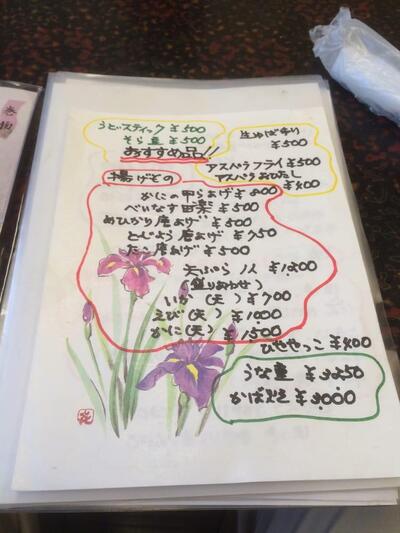 うどスティック ¥500
そら豆 ¥500
おすすめ品!!
生ゆば
¥500
アスパラフライ ¥500
アスパラおひたし
¥400
揚げもの
かにの甲らあげ
べいなす田楽 ¥500
めひかり唐あげ ¥500
どじょう唐あげ ¥750
たこ唐あげ ¥500
天ぷら 1人
(盛りあわせ)
いか (天) ¥700
えび (天) ¥1000
かに (天) ¥1500
ひややっこ ¥400
うな重 ¥3250
かばやき ¥3000
巻物